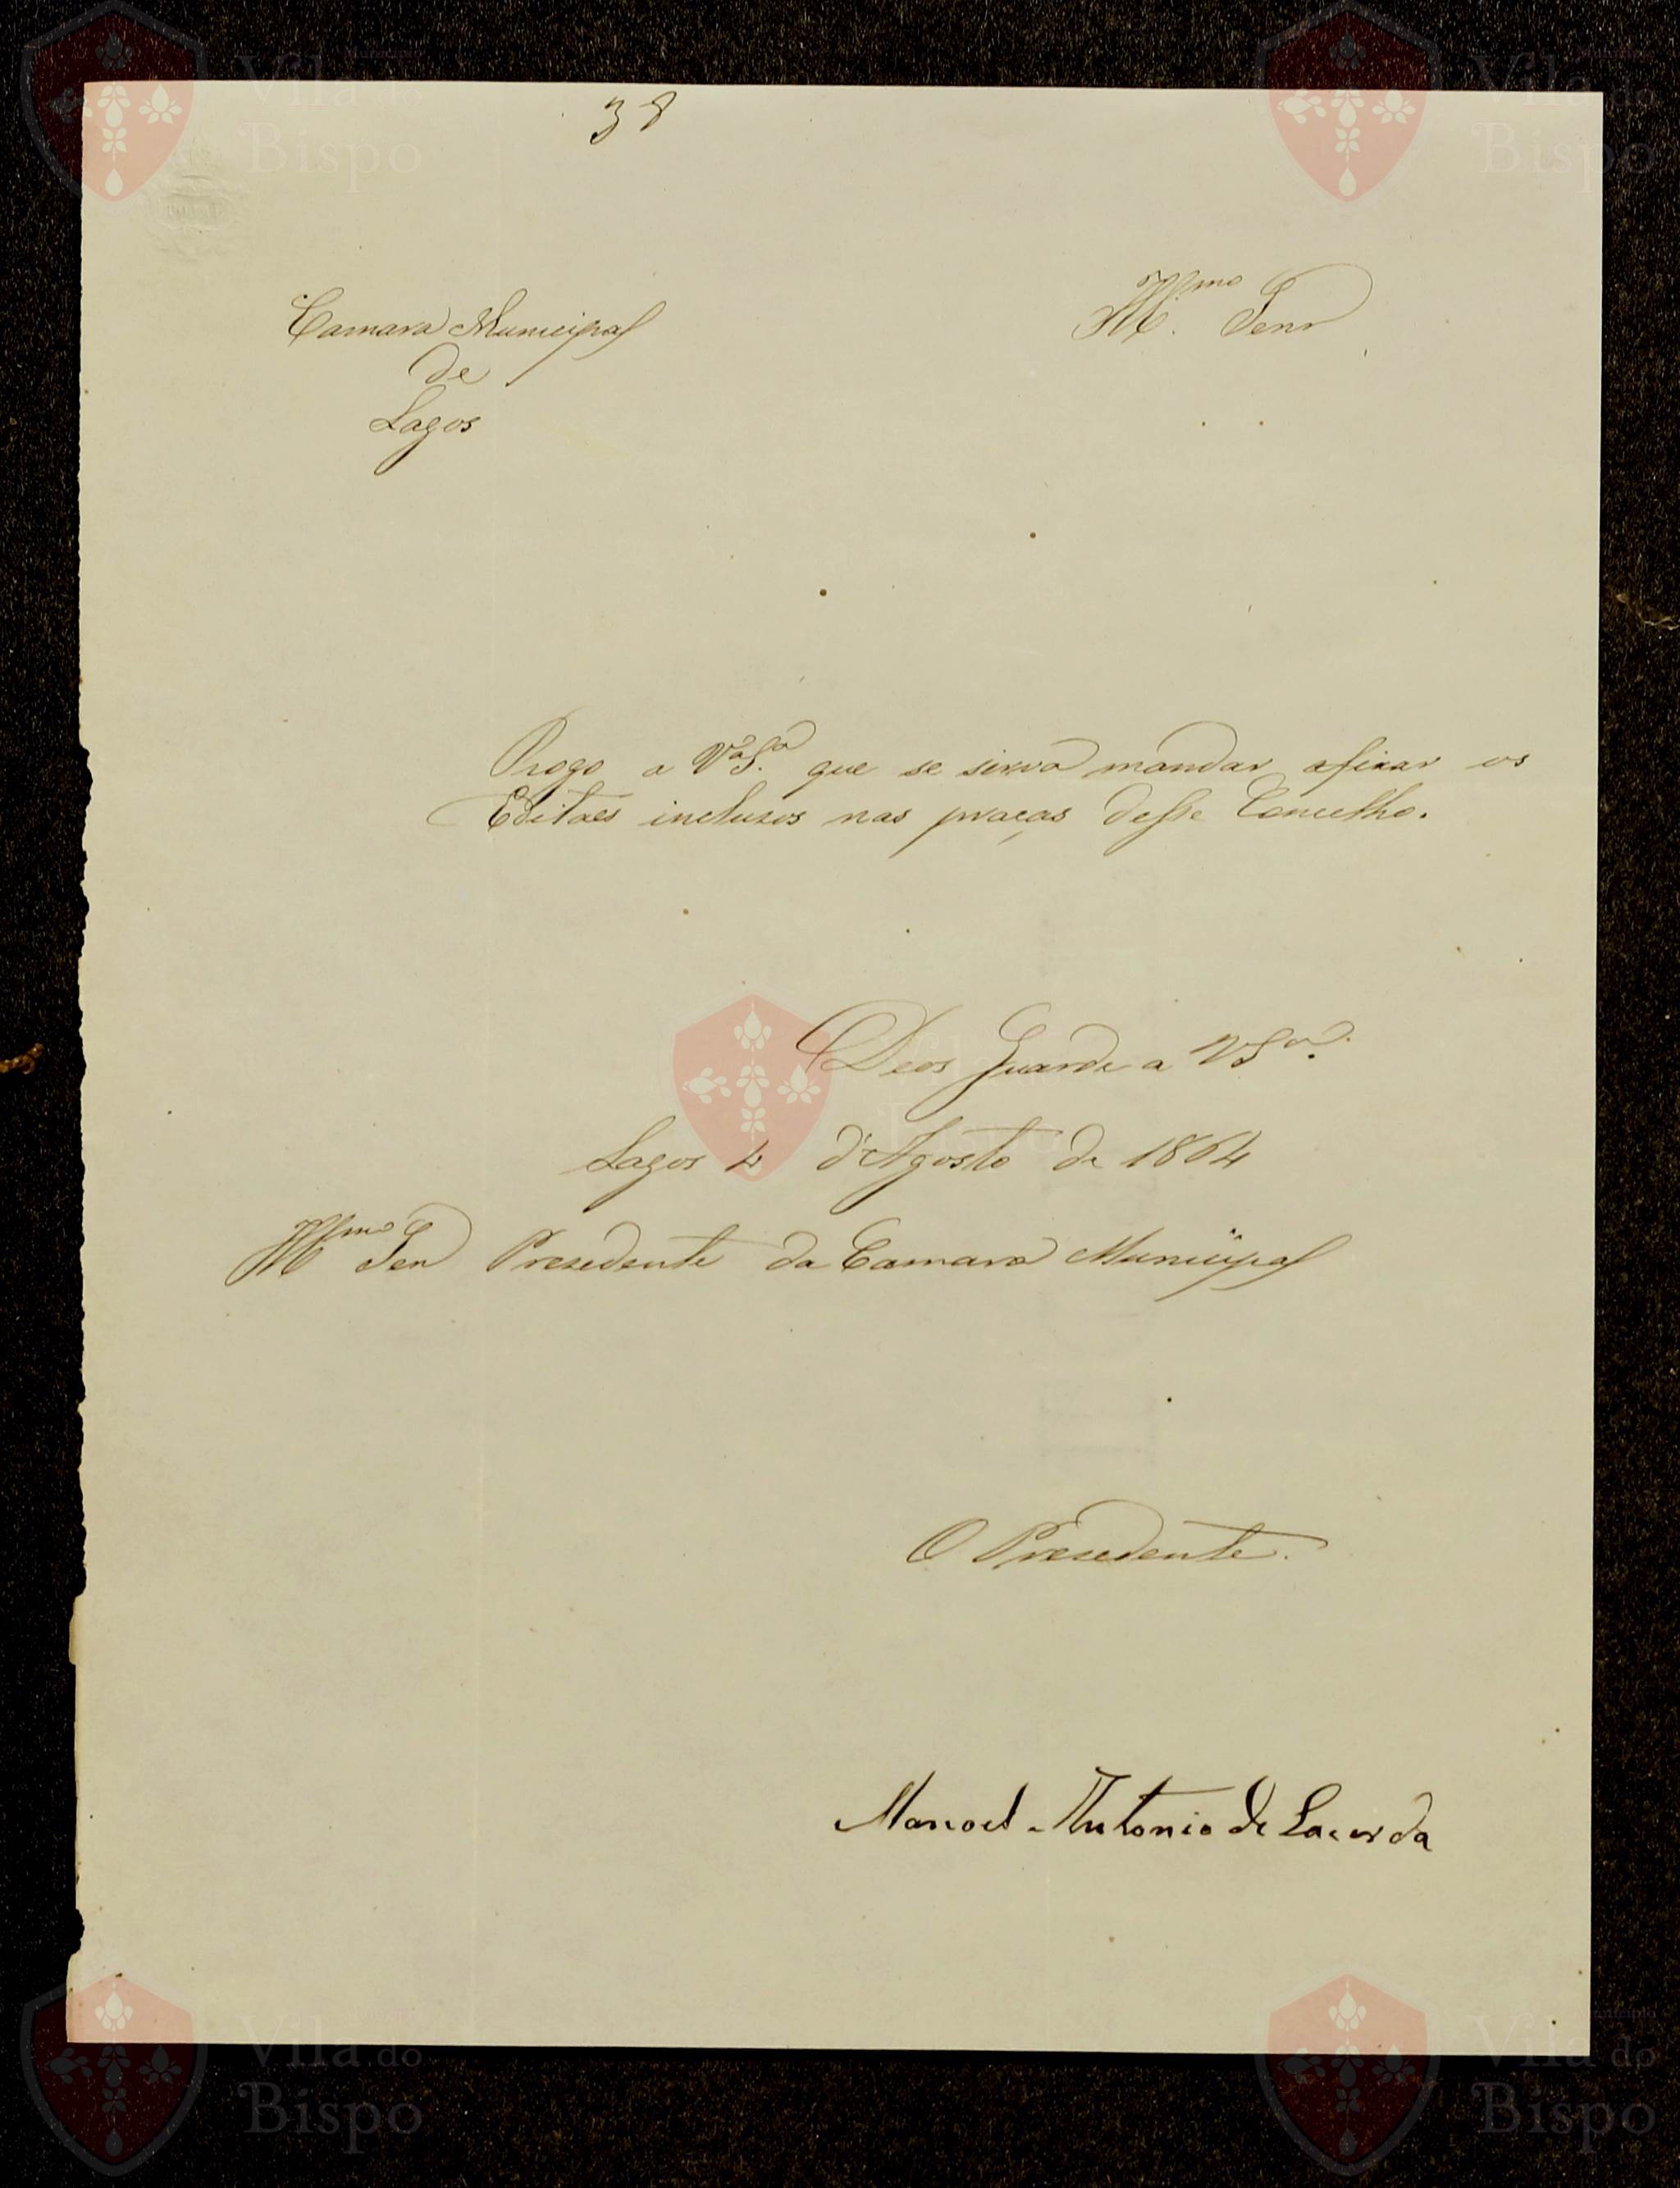 38
Camara Municipal
de
Lagos
Illmo Senr
Rogo a Vª Sª que se sirva mandar afixar os
Editaes incluzos nas praças desse Concelho.
Deos Guarde a VSª.
Lagos 4 d'Agosto de 1864
Illmo Senr Presedente da Camara Municipal
O Presedente.
Manoel Antonio de Lacerda
Vila do
Bispo
Vila do
Bispo
Vila do
Bispo
Vila do
Bispo